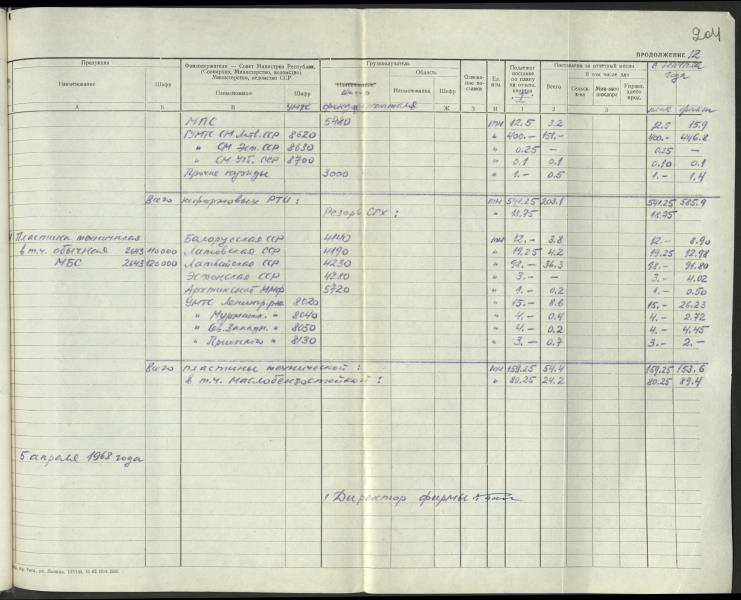 204
ПРОДОЛЖЕНИЕ 12
Продукция
Наименование
Шифр
Фондодержатели — Совет Министров Республики,
(Совнархоз, Министерство, ведомство)
Министерство, ведомство ССР
Наименование
Шифр
УМТС
Грузополучатель
Наименование
Шифр
фондодержателя
Область
Наименование
Шифр
Ед. изм.
Подлежит поставке по плану
Поставлено за отчетный месяц
Всего
В том числе для
с начала года
план факт
А Б В Ж З И 1 2 3
МПС 5780 тн 12.5 3.2 12.5 15.9
УМТС СМ Лит. ССР 8620 " 400.- 151.- 400.- 446.8
" СМ Эст. ССР 8630 " 0.25 - 0.25 -
" СМ Узб. ССР 8700 " 0.1 0.1 0.10 0.1
Прочие нужды 3000 " 1.- 0.5 1.- 1.4
Всего неформовых РТИ: тн 541.25 203.1 541.25 585.9
Резерв СГХ: " 11.75 11.75
Пластина техническая Белорусская ССР 4140 тн 12.- 3.8 12.- 8.90
в т.ч. обычная 2643 110000 Литовская ССР 4190 " 19.25 4.2 19.25 12.98
МБС 2643 120000 Латвийская ССР 4230 " 98.- 36.3 98.- 91.80
Эстонская ССР 4280 " 3.- - 3.- 4.02
Арктический ММФ 5720 " 1.- 0.2 1.- 0.50
УМТС Ленингр. р-на 8020 " 15.- 8.6 15.- 26.23
" Мурманск. " 8040 " 4.- 0.4 4.- 2.72
" Сев. Западн. " 8050 " 4.- 0.2 4.- 4.45
" 8130 " 3.- 0.7 3.- 2.-
Всего пластины технической: тн 159.25 54.4 159.25 153.6
в т.ч. маслобензостойкой: " 80.25 24.2 80.25 89.4
5 апреля 1968 года
Директор фирмы